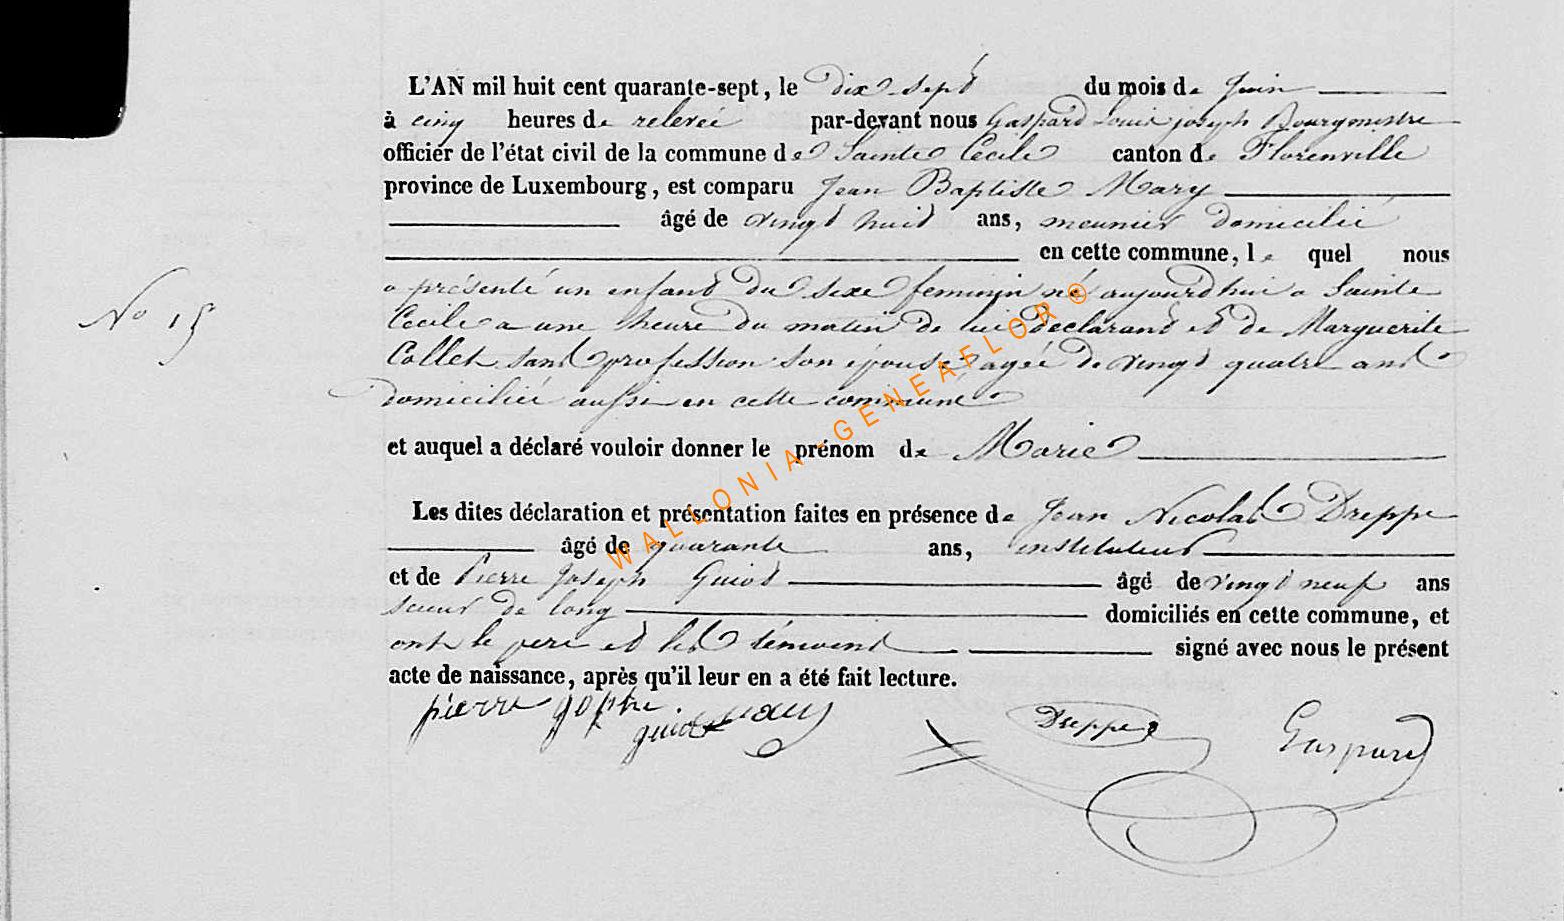 L'AN mil huit cent quarante-sept, le dix-sept du mois de Juin
à cinq heures de relevée par-devant nous Gaspard Louis joseph Bourgmestre
officier de l'état civil de la commune de Sainte Cecile canton de Florenville
province de Luxembourg, est comparu Jean Baptiste Mary
âgé de vingt huit ans, meunier domicilié
en cette commune, le quel nous
a présenté un enfant du sexe feminin né aujourd'hui a Sainte
N° 15
Cecile a une heure du matin de lui declarant et de Marguerite
Collet sans profession son épouse agée de vingt quatre ans
domiciliée aussi en cette commune
et auquel a déclaré vouloir donner le prénom de Marie
Les dites déclaration et présentation faites en présence de Jean Nicolas Dreppe
âgé de quarante ans, instituteur
et de Pierre Joseph Guiot âgé de vingt neuf ans
scieur de long domiciliés en cette commune, et
ont le pere et les témoins signé avec nous le présent
acte de naissance, après qu'il leur en a été fait lecture.
pierre jophe
guiot Dreppe Gaspard
WALLONIA-GENEAFLOR©